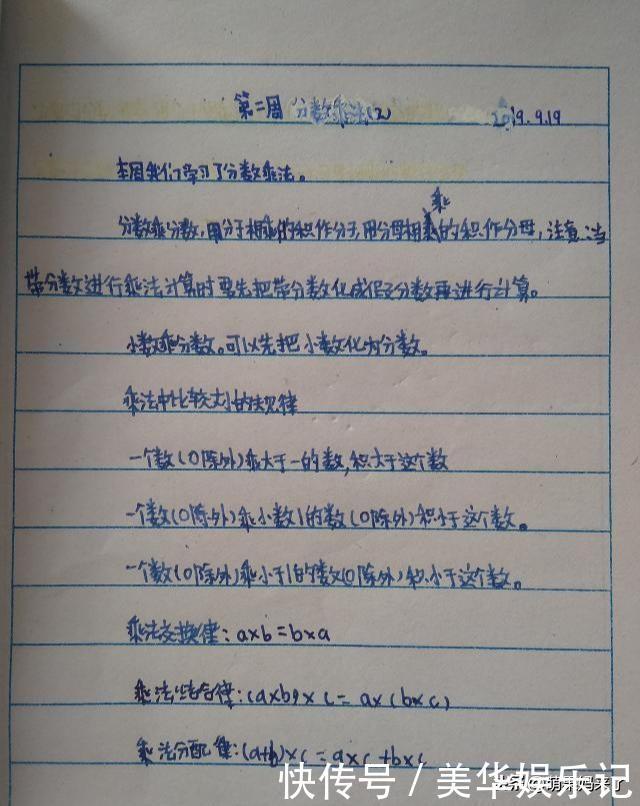 第二周 分数乘法(2) 2019.9.19
本周我们学习了分数乘法。
乘
分数乘分数,用分子相乘的积作分子,用分母相乘的积作分母,注意:当
带分数进行乘法计算时要先把带分数化成假分数再进行计算。
小数乘分数。可以先把小数化为分数。
乘法中比较大小的规律
一个数(0除外)乘大于一的数,积大于这个数
一个数(0除外)乘小数1的数(0除外)积小于这个数。
一个数(0除外)乘小于1的数(0除外)积小于这个数。
乘法交换律:a×b=b×a
乘法结合律:(a×b)×c=a×(b×c)
乘法分配律:(a+b)×c=a×c+b×c
快传号/美华娱乐记